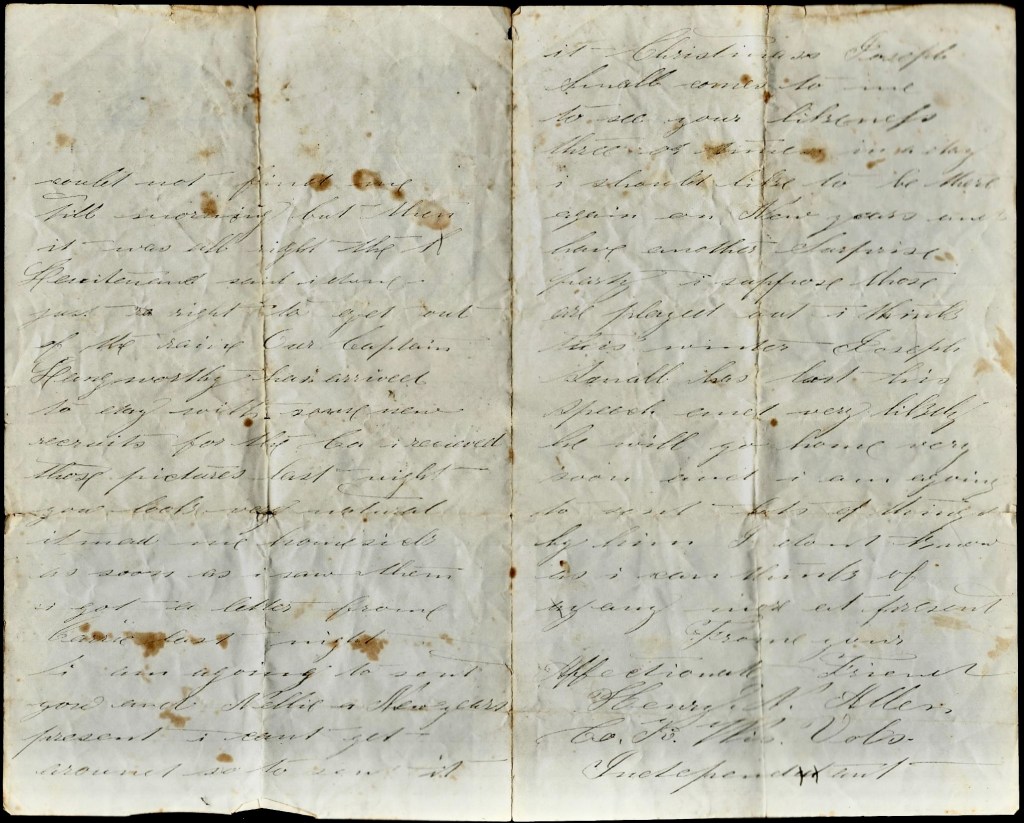 could not find one
till morning but then
it was all right the
Leuitenant said i done
just right to get out
of the raine Our Captain
Langworthy has arrived
to day with some new
recruits for the Co. i received
those pictures last night
you look vary natural
it mad me homesick
as soon as i saw them
i got a letter frome
Carrie last night
i am agoing to sent
you and Nellie a New years
present i cant get
around so to send it
it Christmass Joseph
Small comes to me
to see your likeness
three or times in a day
i should like to be there
again on New years and
have another Surprise
party i suppose those
are played out i think
this winter Joseph
Small has lost his
speech and very likely
he will go home very
soon and i am agoing
to sent lots of things
by him I dont know
as i can think of
any more at present
Frome your
Affectionate Friend
Henry. N. Allen
Co. K. Wis. Vols.
Independant